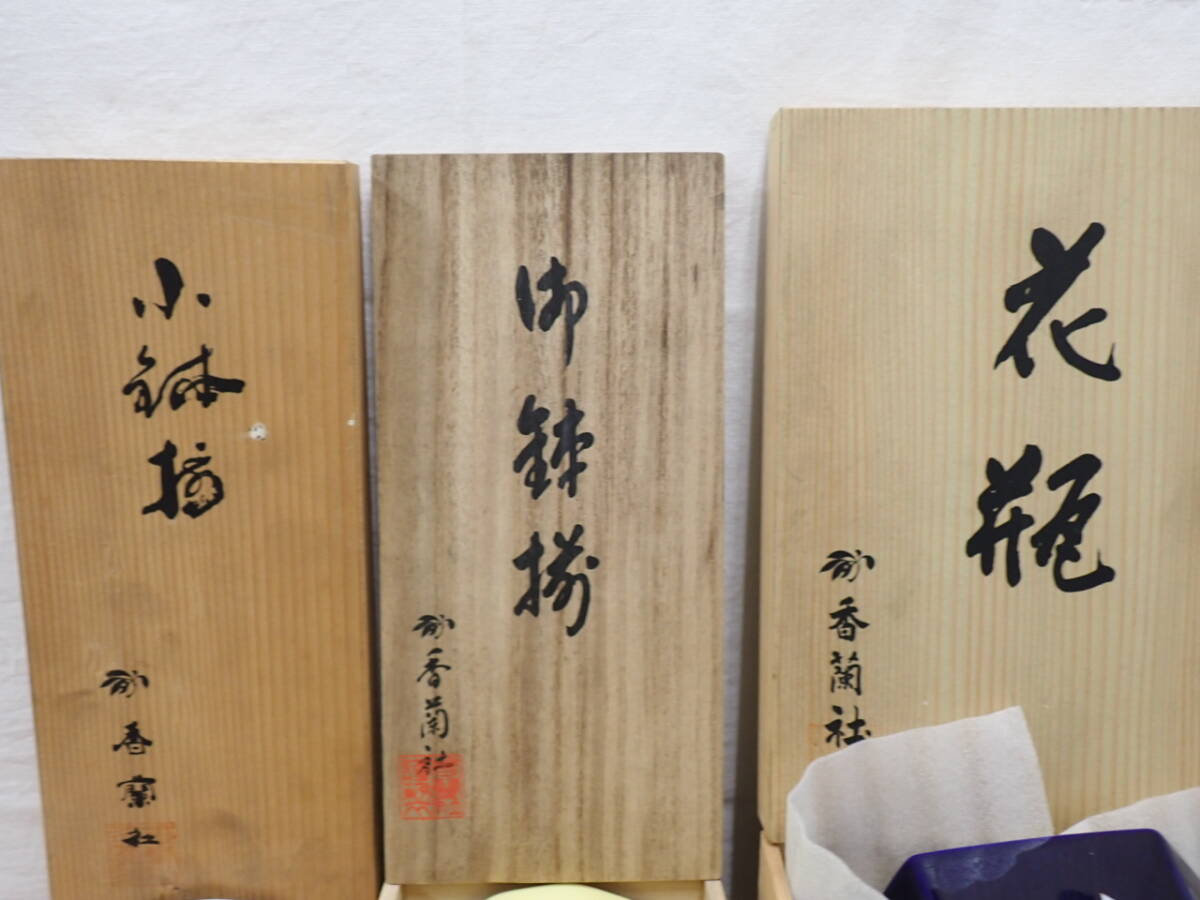 小鉢揃
香蘭社
御鉢揃
香蘭社
花瓶
香蘭社